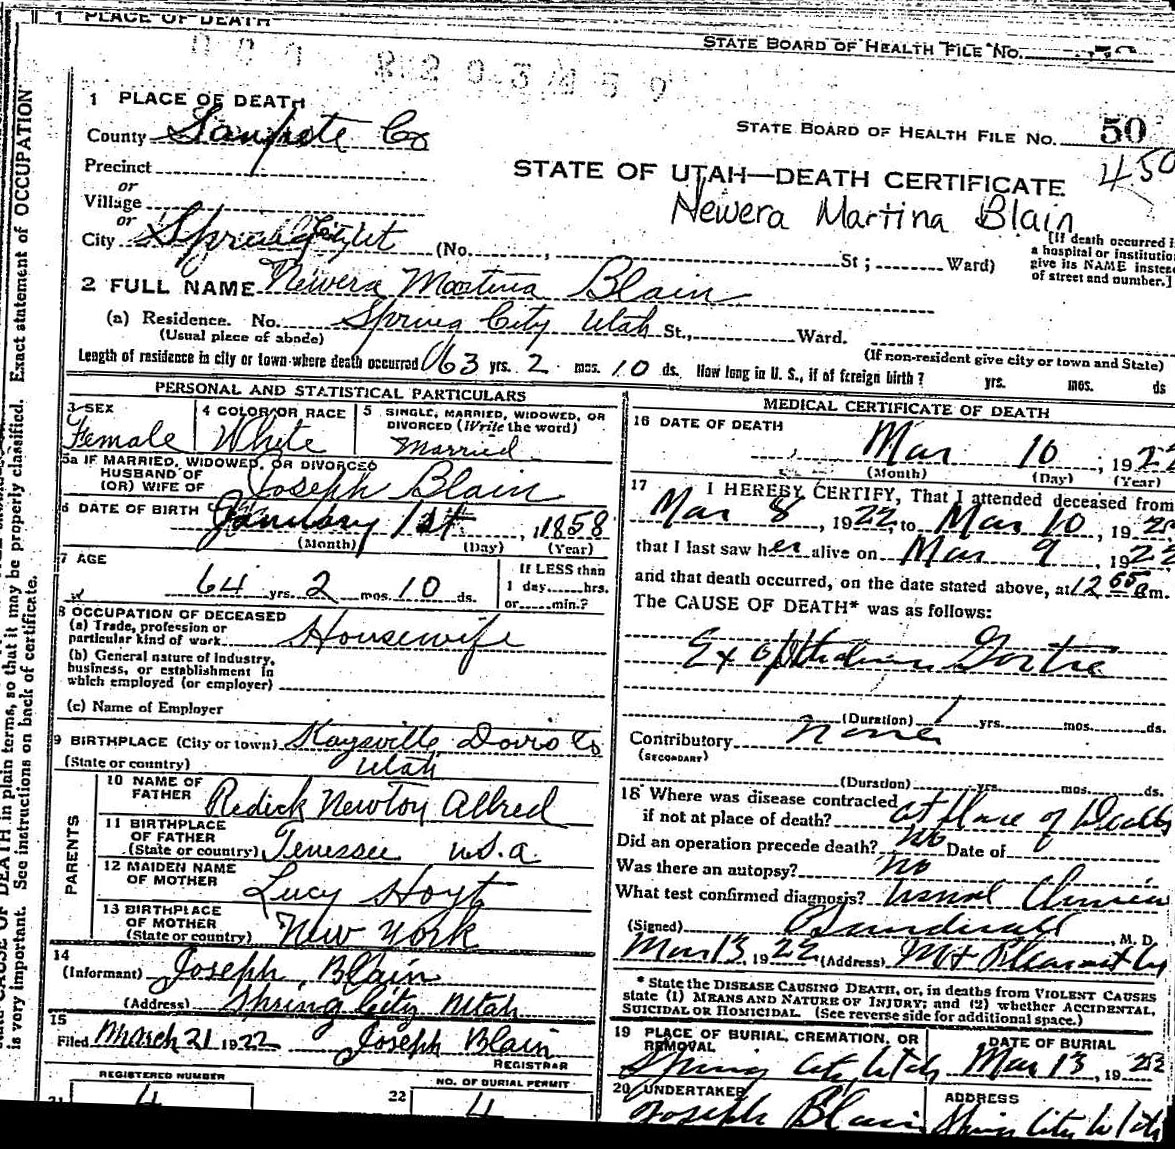 1 PLACE OF DEATH
STATE BOARD OF HEALTH FILE NO.
1 PLACE OF DEATH
County Sanpete Co
STATE BOARD OF HEALTH FILE NO. 50
450
Precinct
or
Village
or
City Spring City Ut (No. , St ; Ward)
STATE OF UTAH—DEATH CERTIFICATE
Newera Martina Blain
[If death occurred i
a hospital or institutio
give its NAME instea
of street and number.]
2 FULL NAME Newera Martina Blain
(a) Residence. No. Spring City Utah St., Ward.
(Usual place of abode)
(If non-resident give city or town and State)
Length of residence in city or town where death occurred 63 yrs. 2 mos. 10 ds. How long in U. S., if of foreign birth? yrs. mos. ds
PERSONAL AND STATISTICAL PARTICULARS
3 SEX
Female
4 COLOR OR RACE
White
5 SINGLE, MARRIED, WIDOWED, OR
DIVORCED (Write the word)
Married
5a IF MARRIED, WIDOWED, OR DIVORCED
HUSBAND OF
(OR) WIFE OF Joseph Blain
6 DATE OF BIRTH January 1st, 1858
(Month) (Day) (Year)
7 AGE
64 yrs. 2 mos. 10 ds.
If LESS than
1 day hrs.
or min.?
8 OCCUPATION OF DECEASED
(a) Trade, profession or
particular kind of work Housewife
(b) General nature of industry,
business, or establishment in
which employed (or employer)
(c) Name of Employer
9 BIRTHPLACE (City or town) Kaysville Davis Co
(State or country) Utah
PARENTS
10 NAME OF
FATHER Redick Newton Allred
11 BIRTHPLACE
OF FATHER
(State or country) Tenessee U.S.A.
12 MAIDEN NAME
OF MOTHER Lucy Hoyt
13 BIRTHPLACE
OF MOTHER
(State or country) New York
14
(Informant) Joseph Blain
(Address) Spring City Utah
15
Filed March 21 1922 Joseph Blain
REGISTRAR
REGISTERED NUMBER
21 4
NO. OF BURIAL PERMIT
22 4
MEDICAL CERTIFICATE OF DEATH
16 DATE OF DEATH
Mar 10, 1922
(Month) (Day) (Year)
17 I HEREBY CERTIFY, That I attended deceased from
Mar 8, 1922, to Mar 10, 192
that I last saw her alive on Mar 9, 1922
and that death occurred, on the date stated above, at 12 05 a m.
The CAUSE OF DEATH* was as follows:
Exopthalmic Goitre
(Duration) 1 yrs. mos. ds.
Contributory none
(SECONDARY)
(Duration) yrs. mos. ds.
18 Where was disease contracted
if not at place of death? at place of Death
Did an operation precede death? no Date of
Was there an autopsy? no
What test confirmed diagnosis? usual
(Signed) , M. D.
Mar 13, 1922 (Address) Mt Pleasant
* State the DISEASE CAUSING DEATH, or, in deaths from VIOLENT CAUSES
state (1) MEANS AND NATURE OF INJURY; and (2) whether ACCIDENTAL,
SUICIDAL OR HOMICIDAL. (See reverse side for additional space.)
19 PLACE OF BURIAL, CREMATION, OR
REMOVAL
Spring City Utah
DATE OF BURIAL
Mar 13, 1922
20 UNDERTAKER
Joseph Blain
ADDRESS
Spring City Utah
DEATH in plain terms, so that it may be properly classified. Exact statement of OCCUPATION
is very important. See instructions on back of certificate.